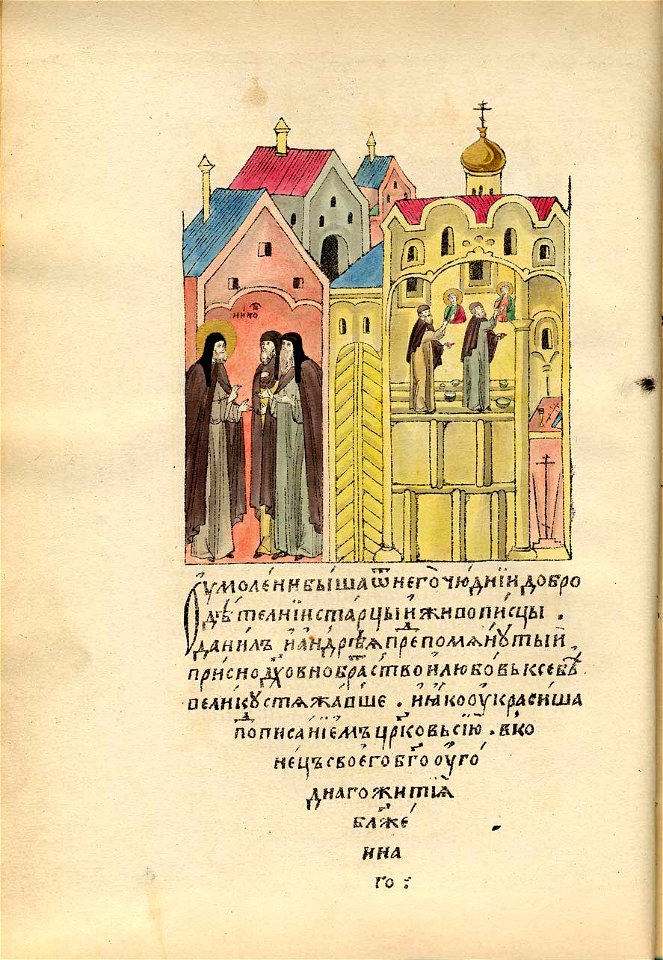 НИКО
Умолени быша ѿ него чюднїи добро
дѣтелнїи старцы и живописцы .
данилъ и андрѣй препомянутый
присно дхѡвно братство и любовь к себѣ
велику стяжавше . и яко украсиша
подписанїемъ црковь сїю . в ко
нецъ своего бгоуго
днаго житїя
блаже
нна
го :